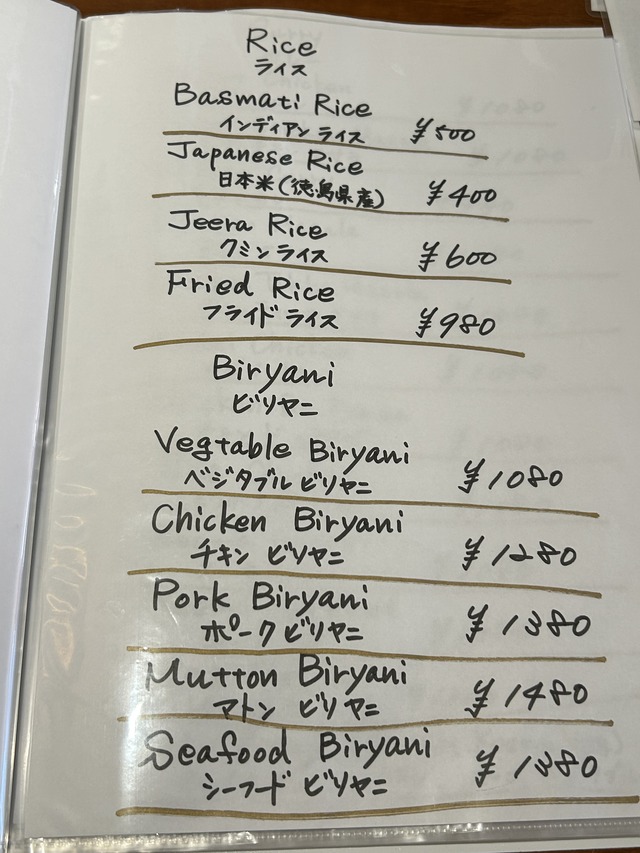 Rice
ライス
Basmati Rice
インディアン ライス ¥500
Japanese Rice
日本米(徳島県産) ¥400
Jeera Rice
クミン ライス ¥600
Fried Rice
フライド ライス ¥980
Biryani
ビリヤニ
Vegtable Biryani
ベジタブル ビリヤニ ¥1080
Chicken Biryani
チキン ビリヤニ ¥1280
Pork Biryani
ポーク ビリヤニ ¥1380
Mutton Biryani
マトン ビリヤニ ¥1480
Seafood Biryani
シーフード ビリヤニ ¥1380